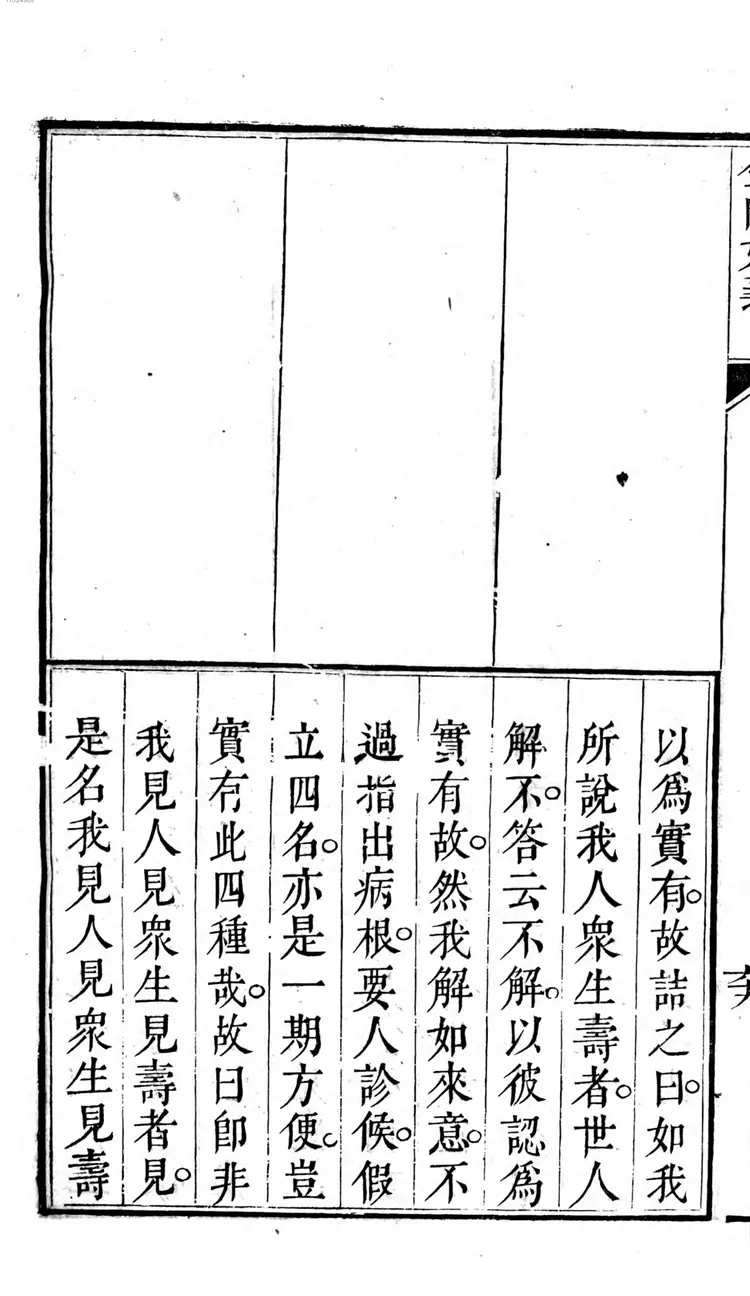 以爲實有。故詰之曰。如我
所說我人衆生壽者。世人
解不。答云不解。以彼認爲
實有故。然我解如來意。不
過指出病根。要人診候。假
立四名。亦是一期方便。豈
實有此四種哉。故曰卽非
我見人見衆生見壽者見。
是名我見人見衆生見壽